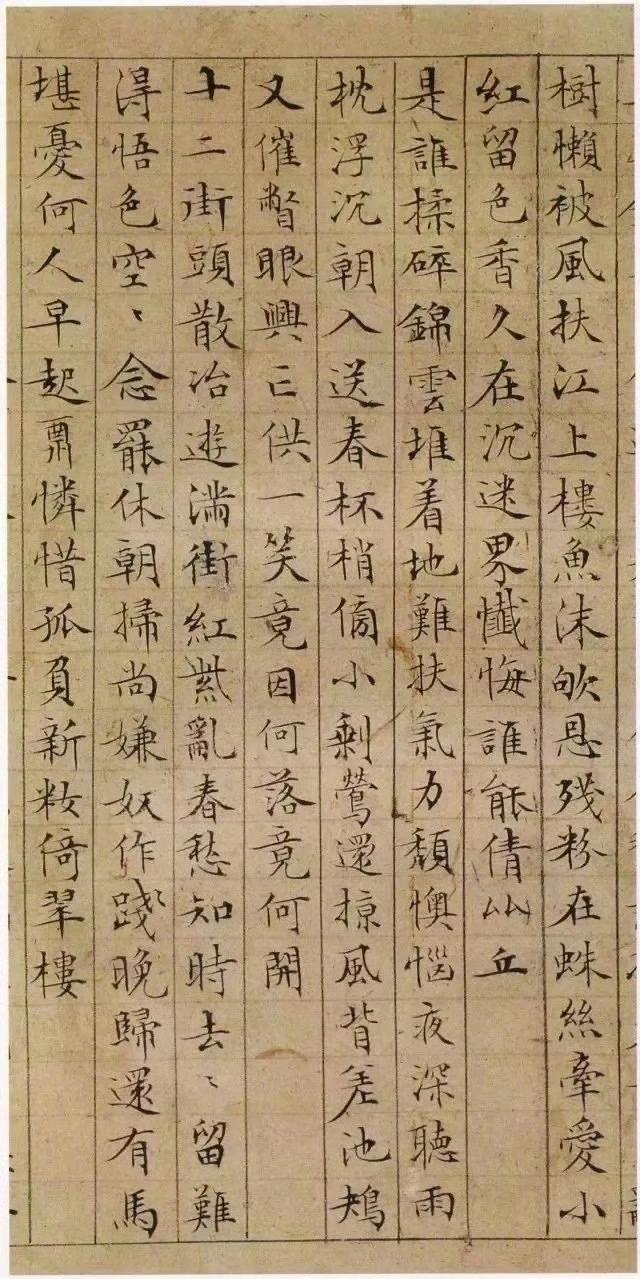 樹懶被風扶江上樓魚沫欨恩殘粉在蛛絲牽愛小
紅留色香久在沉迷界懺悔誰能倩比丘
是誰揉碎錦雲堆着地難扶氣力頹懊惱夜深聽雨
枕浮沉朝入送春杯梢傍小剩鶯還掠風背差池鴂
又催瞥眼興亡供一笑竟因何落竟何開
十二街頭散冶遊滿街紅紫亂春愁知時去〻留難
得悟色空〻念罷休朝掃尚嫌奴作踐晚歸還有馬
堪憂何人早起憐惜孤負新妝倚翠樓